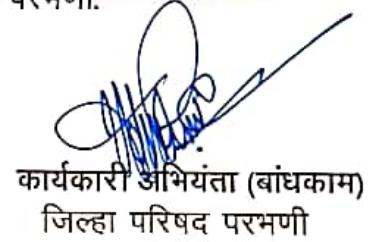 परभणी.
कार्यकारी अभियंता (बांधकाम)
जिल्हा परिषद परभणी